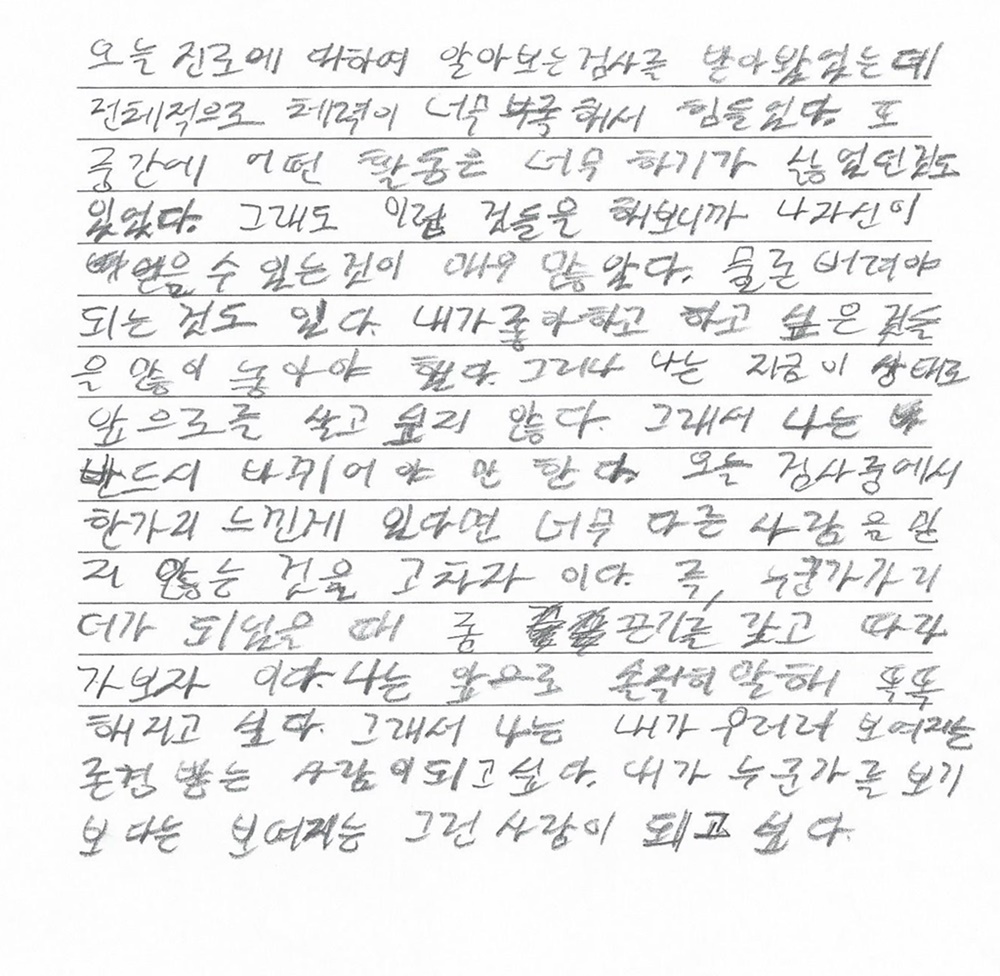 오늘 진로에 대하여 알아보는 검사를 받아 봤었는데
전체적으로 체력이 너무 부족해서 힘들었다. 또
중간에 어떤 활동은 너무 하기가 싫었던 것도
있었다. 그래도 이런 것들을 해보니까 나 자신이
얻음 수 있는 것이 매우 많았다. 물론 버려야
되는 것도 있다. 내가 좋아하고 하고 싶은 것들
을 많이 놓아야 했다. 그러나 나는 지금 이 상태로
앞으로를 살고 싶지 않다. 그래서 나는
반드시 바뀌어야 만 한다. 오늘 검사중에서
한가지 느낀게 있다면 너무 다른 사람을 믿
지 않는 것을 고치자 이다. 즉, 누군가가 리
더가 되었을 때 좀 끈기를 갖고 따라
가보자 이다. 나는 앞으로 솔직히 말해 똑똑
해지고 싶다. 그래서 나는 내가 우러러 보여지는
존경 받는 사람이 되고 싶다. 내가 누군가를 보기
보다는 보여지는 그런 사람이 돼고 싶다.